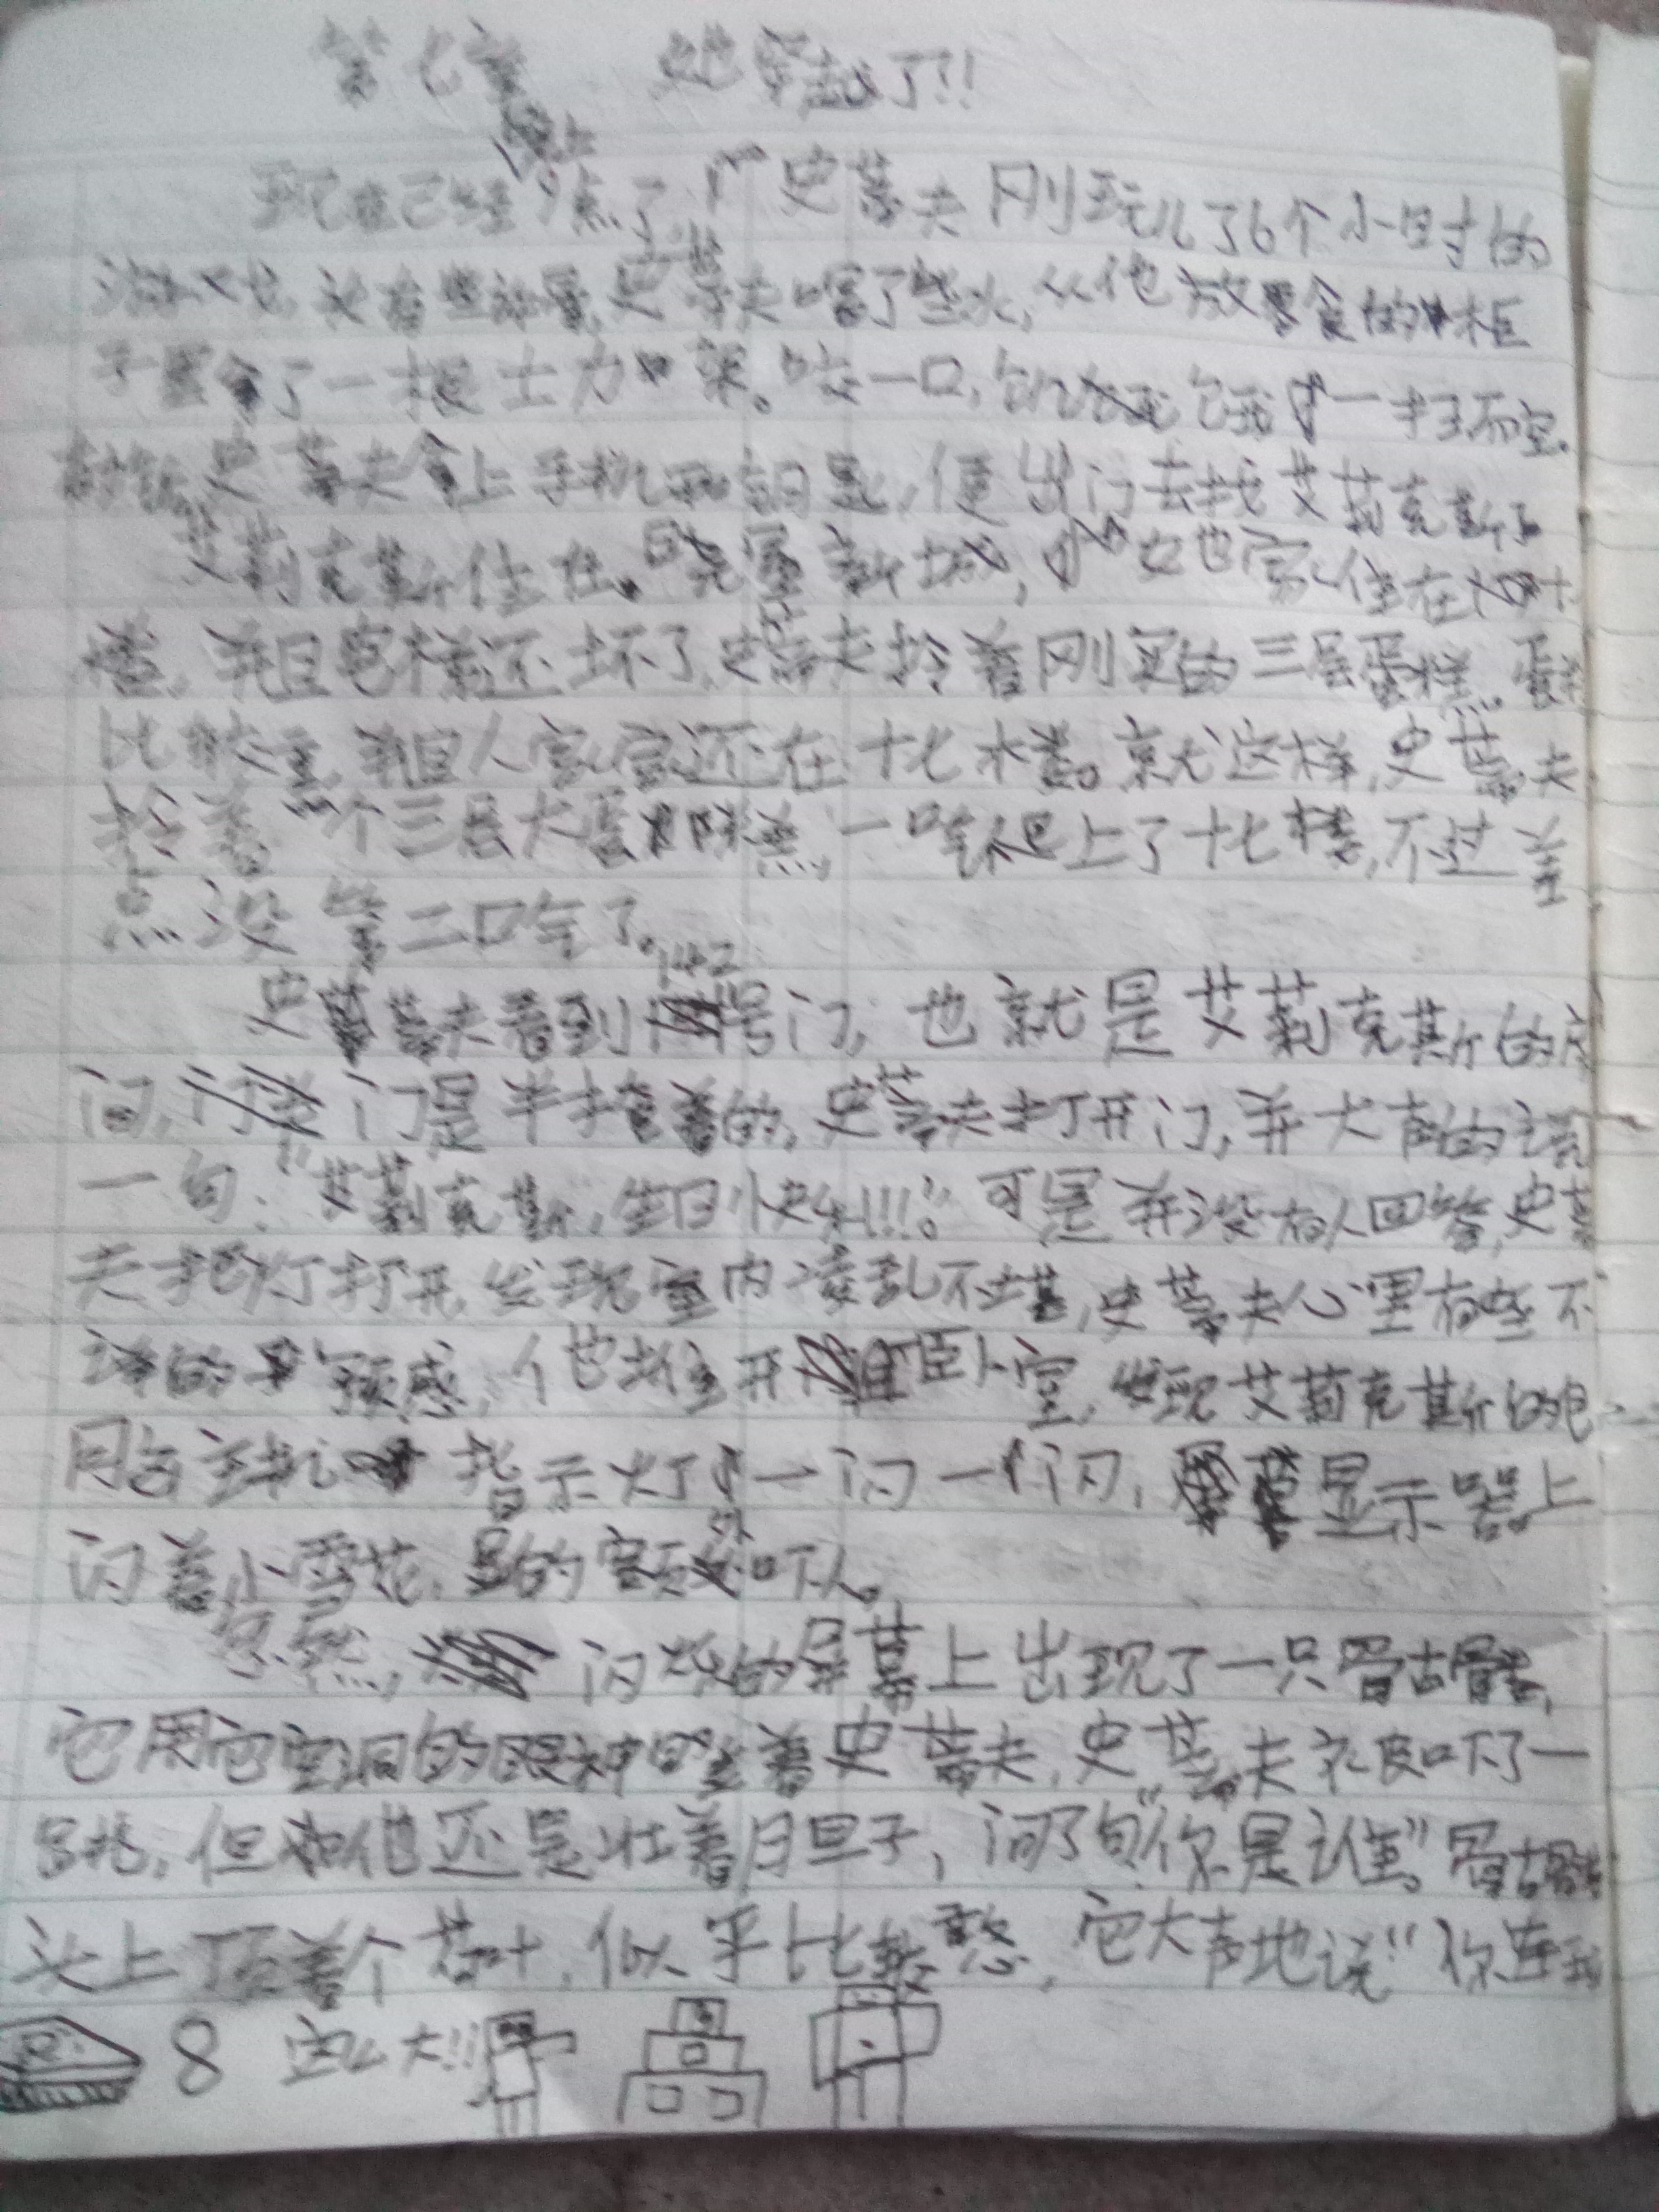 第七章 她穿越了!!
现在已经9点了, 史蒂夫刚玩儿了6个小时的
游戏, 头有些晕, 史蒂夫喝了些水, 从他放零食的柜
子里拿了一根士力架。咬一口, 饥饿 一扫而空。
史蒂夫拿上手机和钥匙, 便出门去找艾莉克斯了
艾莉克斯住在 新城, 她家住在十
楼, 并且电梯还坏了, 史蒂夫拎着刚买的三层蛋糕。蛋糕
比较重, 并且人家家还在十七楼。就这样, 史蒂夫
拎着一个三层大蛋糕, 一口气爬上了十七楼, 不过差
点没第二口气了。
史蒂夫看到142号门, 也就是艾莉克斯的房
间, 门是半掩着的, 史蒂夫打开门, 并大声的说
一句: "艾莉克斯, 生日快乐!!!"。可是并没有人回答, 史蒂
夫把灯打开, 发现室内凌乱不堪, 史蒂夫心里有些不
详的预感, 他推开卧室, 发现艾莉克斯的电
脑主机指示灯一闪一闪, 显示器上
闪着小雪花, 显的额外吓人。
忽然, 闪花的屏幕上出现了一只骨古骨娄,
它用它空洞的眼神盯着史蒂夫, 史蒂夫被吓了一
跳, 但他还是壮着胆子, 问了句"你是谁"。骨古骨娄
头上顶着个荷叶, 似乎比较憨, 它大声地说"你连我
8 大!!